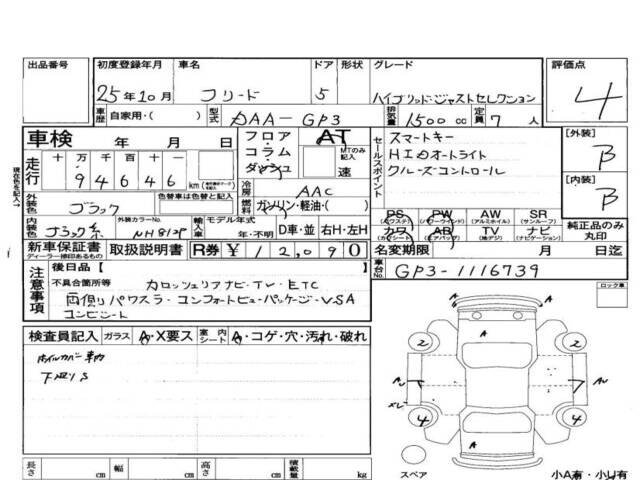 出品番号 初度登録年月 車名 ドア 形状 グレード 評価点
25年10月 フリード 5 ハイブリッド・ジャストセレクション 4
車歴 自家用・( ) 型式 DAA-GP3 排気量 1500cc 定員 7人
車検 年 月 日 フロア・コラム・ダッシュ AT MTのみ記入 速
セールスポイント スマートキー
HIDオートライト
クルーズコントロール
[外装] B
[内装] B
走行 十 万 千 百 十 km
9 4 6 4 6
現在色を記入→
外装色 ブラック 色替車は色替と記入
冷房 AAC
燃料 ガソリン・軽油・( )
内装色 ブラック系 外装カラーNo. NH812P 輸入車 モデル年式 年・不明 D車・並 右H・左H
PS (パワステ) PW (パワーウインド) AW (アルミホイル) SR (サンルーフ)
カワ (カワシート) AB (エアバッグ) TV (地デジ) ナビ (ナビゲーション)
純正品のみ丸印
新車保証書 ディーラー捺印あるもの 取扱説明書 R券 ¥12,090
名変期限 月 日迄
車台No. GP3-1116739
注意事項 後日品[ ]
不具合箇所等 カロッツェリアナビ・TV・ETC
両側パワスラ・コンフォートビューパッケージ・VSA
コンビシート
ロック車
検査員記入 ガラス A・X要ス 室内シート A・コゲ・穴・汚れ・破れ
ホイルカバー車内
下廻りS
A
A
2 2
A
4 4
A
長さ cm 幅 cm 高さ cm 積載量 kg
スペア 小A有・小U有